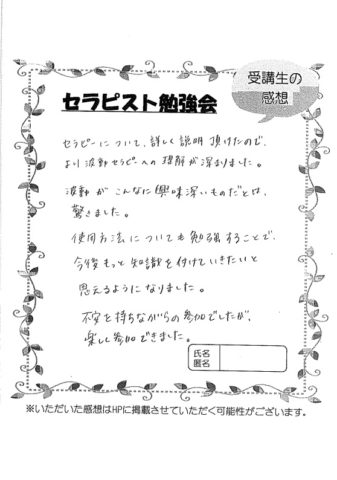 受講生の
感想
セラピスト勉強会
セラピーについて、詳しく説明頂けたので、
より波動セラピーへの理解が深まりました。
波動がこんなに興味深いものだとは、
驚きました。
使用方法についても勉強することで、
今後もっと知識を付けていきたいと
思えるようになりました。
不安を持ちながらの参加でしたが、
楽しく参加できました。
氏名
匿名
※いただいた感想はHPに掲載させていただく可能性がございます。